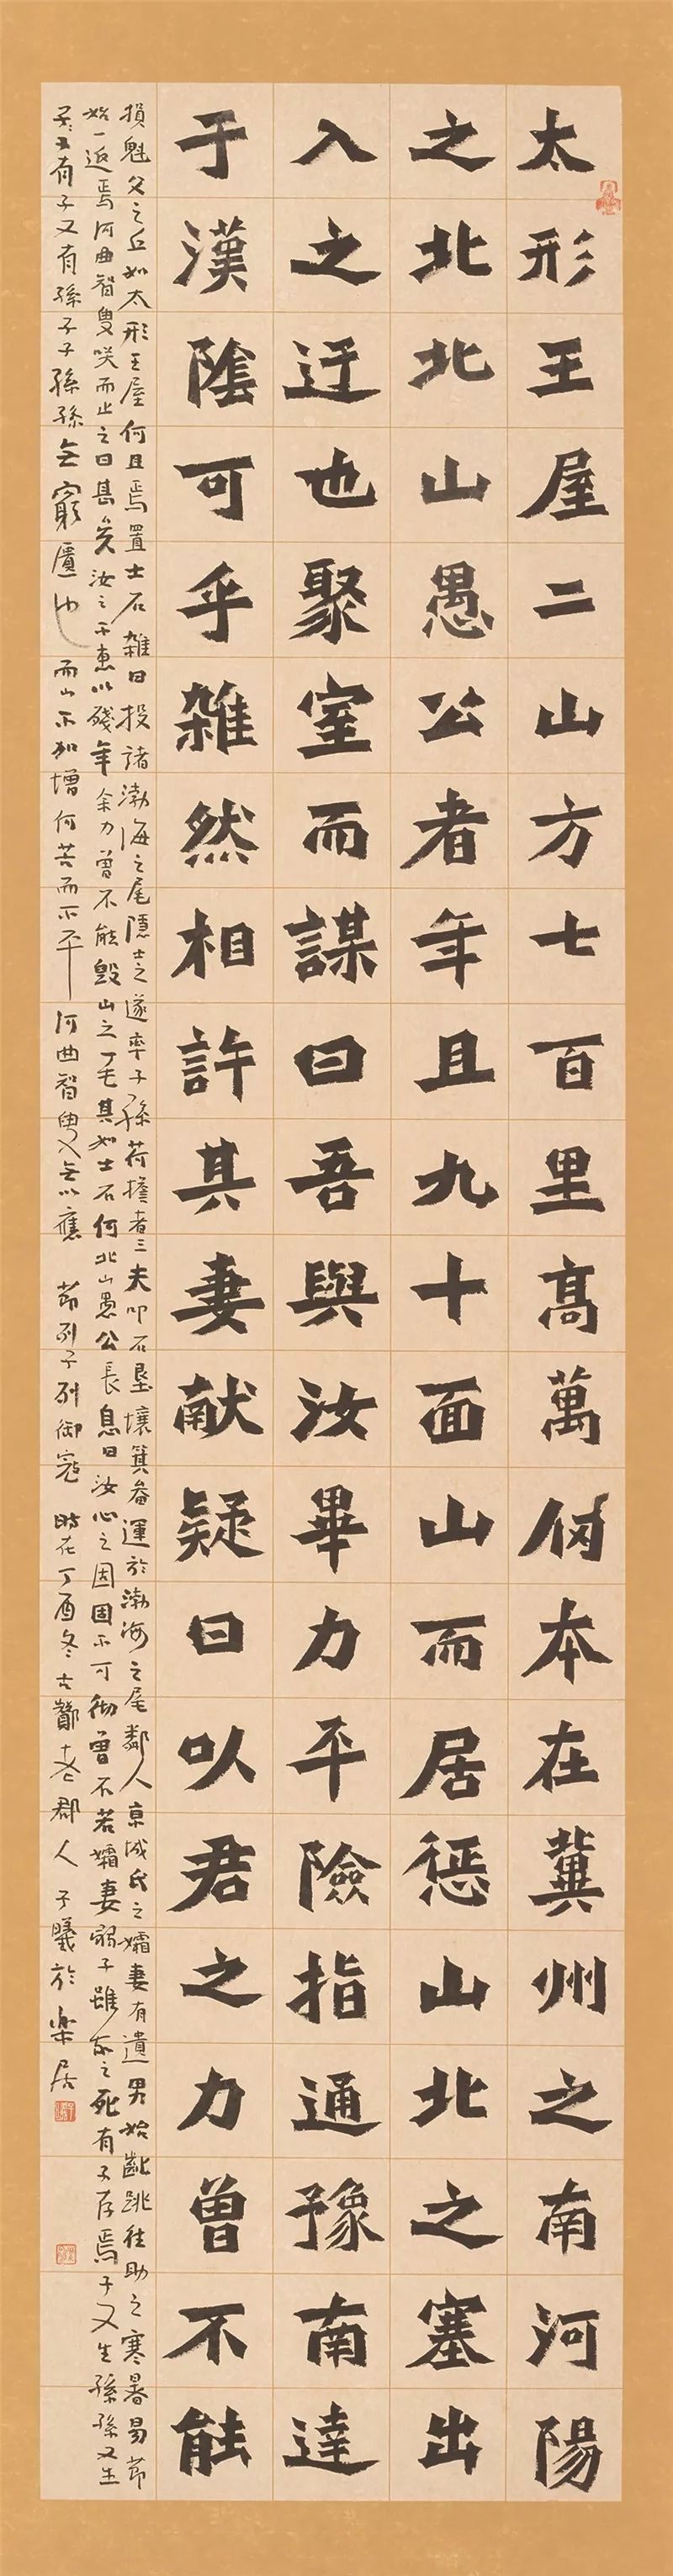 太形王屋二山方七百里髙萬仞本在冀州之南河陽
之北北山愚公者年且九十面山而居惩山北之塞出
入之迂也聚室而謀曰吾與汝畢力平險指通豫南達
于漢隂可乎雑然相許其妻献疑曰以君之力曾不能
損魁父之丘如太形王屋何且焉置土石雑曰投諸渤海之尾隱土之遂率子孫荷擔者三夫叩石墾壤箕畚運於渤海之尾鄰人京城氏之孀妻有遺男始齔跳往助之寒暑易節
始一返焉河曲智叟咲而止之曰甚矣汝之不惠以殘年余力曾不能毀山之一毛其如土石何北山愚公長息曰汝心之固固不可徹曾不若孀妻弱子雖我之死有子存焉子又生孫孫又生
子子又有子又有孫子子孫孫无窮匱也而山不加增何苦而不平河曲智叟无以應 節列子列御寇 時在丁酉冬古酂老郡人子曦於樂居